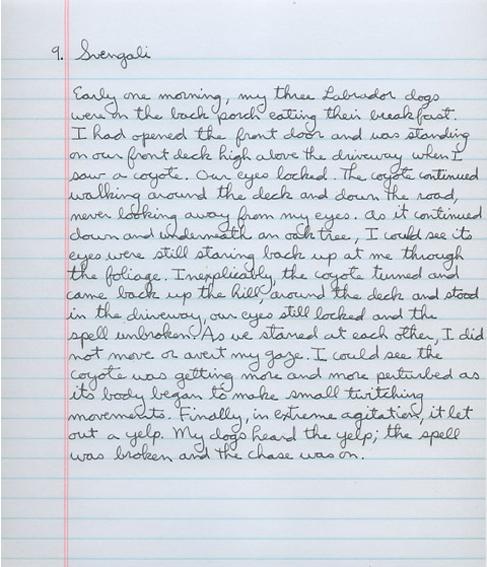 9. Svengali
Early one morning, my three Labrador dogs
were on the back porch eating their breakfast.
I had opened the front door and was standing
on our front deck high above the driveway when I
saw a coyote. Our eyes locked. The coyote continued
walking around the deck and down the road,
never looking away from my eyes. As it continued
down and underneath an oak tree, I could see its
eyes were still staring back up at me through
the foliage. Inexplicably, the coyote turned and
came back up the hill, around the deck and stood
in the driveway, our eyes still locked and the
spell unbroken. As we stared at each other, I did
not move or avert my gaze. I could see the
coyote was getting more and more perturbed as
its body began to make small twitching
movements. Finally, in extreme agitation, it let
out a yelp. My dogs heard the yelp; the spell
was broken and the chase was on.